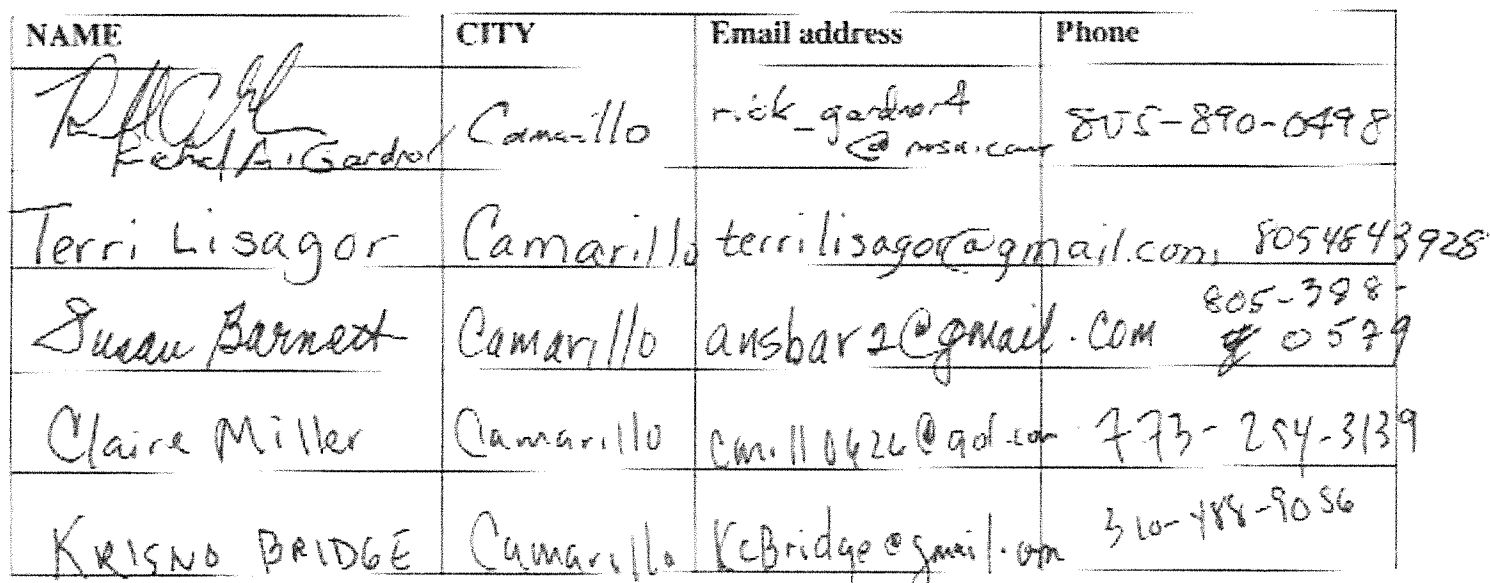 NAME CITY Email address Phone
Gardner Camarillo rick_gardner4 805-890-0498
Terri Lisagor Camarillo terrilisagor@gmail.com, 8054843928
Susan Barnett Camarillo ansbar2@gmail.com 805-388-
0579
Claire Miller Camarillo cmill0426@aol.com 773-254-3139
BRIDGE Camarillo KcBridge@gmail.com 310-488-9056